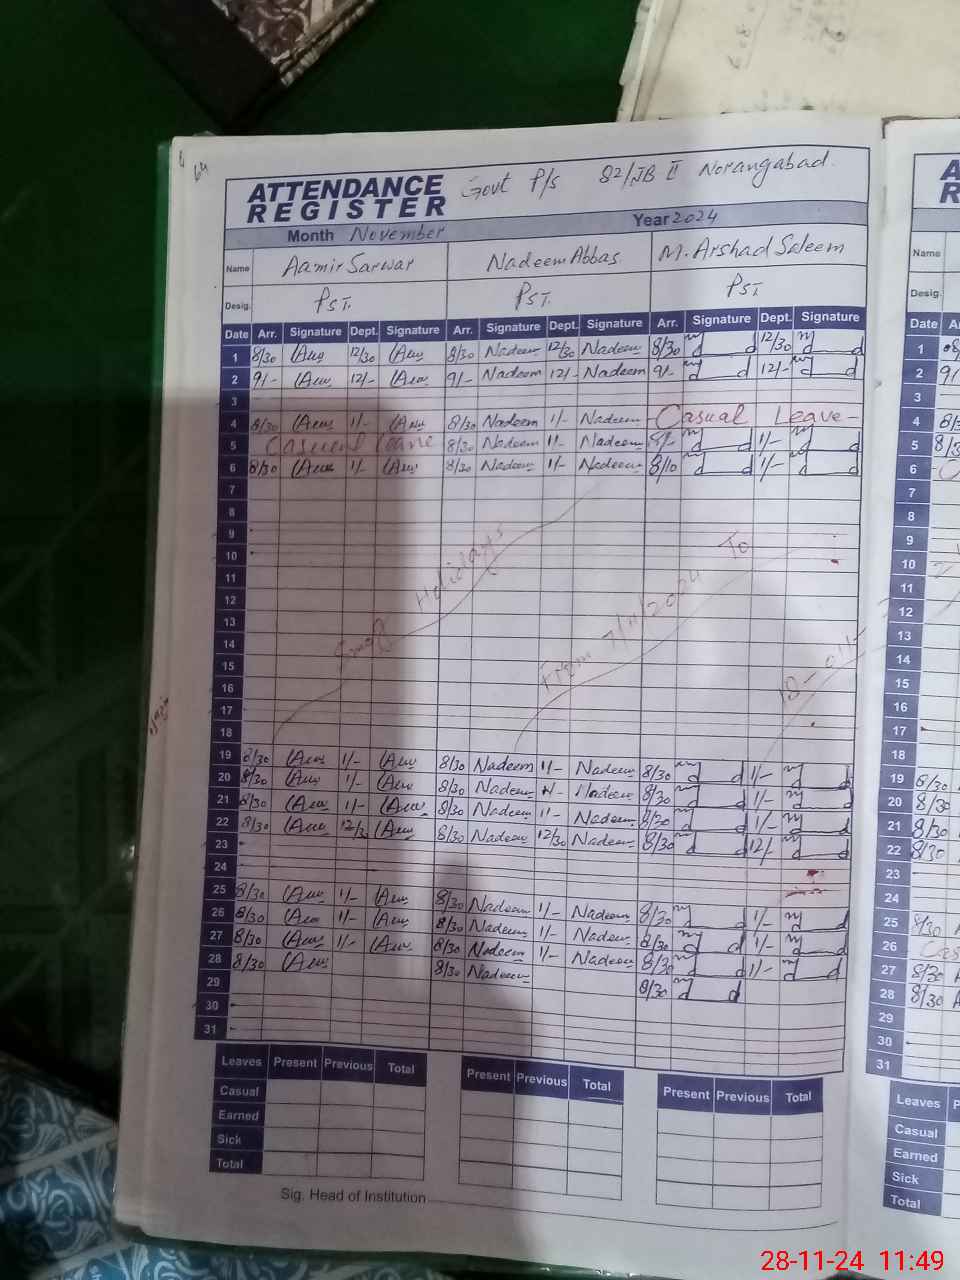 64
ATTENDANCE REGISTER Govt P/s 82/JB II Norangabad
Month November Year 2024
Name Aamir Sarwar Nadeem Abbas M. Arshad Saleem
Desig. PST. PST. PST
Date Arr. Signature Dept. Signature Arr. Signature Dept. Signature Arr. Signature Dept. Signature
1 8/30 12/30 8/30 Nadeem 12/30 Nadeem 8/30 12/30
2 9/- 12/- 9/- Nadeem 12/- Nadeem 9/- 12/-
3
4 8/30 1/- 8/30 Nadeem 1/- Nadeem -Casual Leave-
5 8/30 Nadeem 1/- Nadeem 1/-
6 8/30 1/- 8/30 Nadeem 1/- Nadeem 8/10 1/-
7
8
9
10
11
12
13
14
15
16
17
18
Smog Holidays From 7/11/2024 To
19 8/30 1/- 8/30 Nadeem 1/- Nadeem 8/30 1/-
20 8/30 1/- 8/30 Nadeem Nadeem 8/30 1/-
21 8/30 1/- 8/30 Nadeem 1/- Nadeem 8/30 1/-
22 8/30 8/30 Nadeem 12/30 Nadeem 8/30 12/-
23
24
25 8/30 1/- 8/30 Nadeem 1/- Nadeem 8/30 1/-
26 8/30 1/- 8/30 Nadeem 1/- Nadeem 8/30 1/-
27 8/30 1/- 8/30 Nadeem 1/- Nadeem 8/30 1/-
28 8/30 8/30 Nadeem 8/30
29
30
31
Leaves Present Previous Total Present Previous Total Present Previous Total
Casual
Earned
Sick
Total
Sig. Head of Institution
A
R
Name
Desig.
Date A
1
2
3
4
5
6
7
8
9
10
11
12
13
14
15
16
17
18
19 8/30
20 8/30
21 8/30
22 8/30
23
24
25 8/30
26
27 8/30
28 8/30
29
30
31
Leaves P
Casual
Earned
Sick
Total
28-11-24 11:49